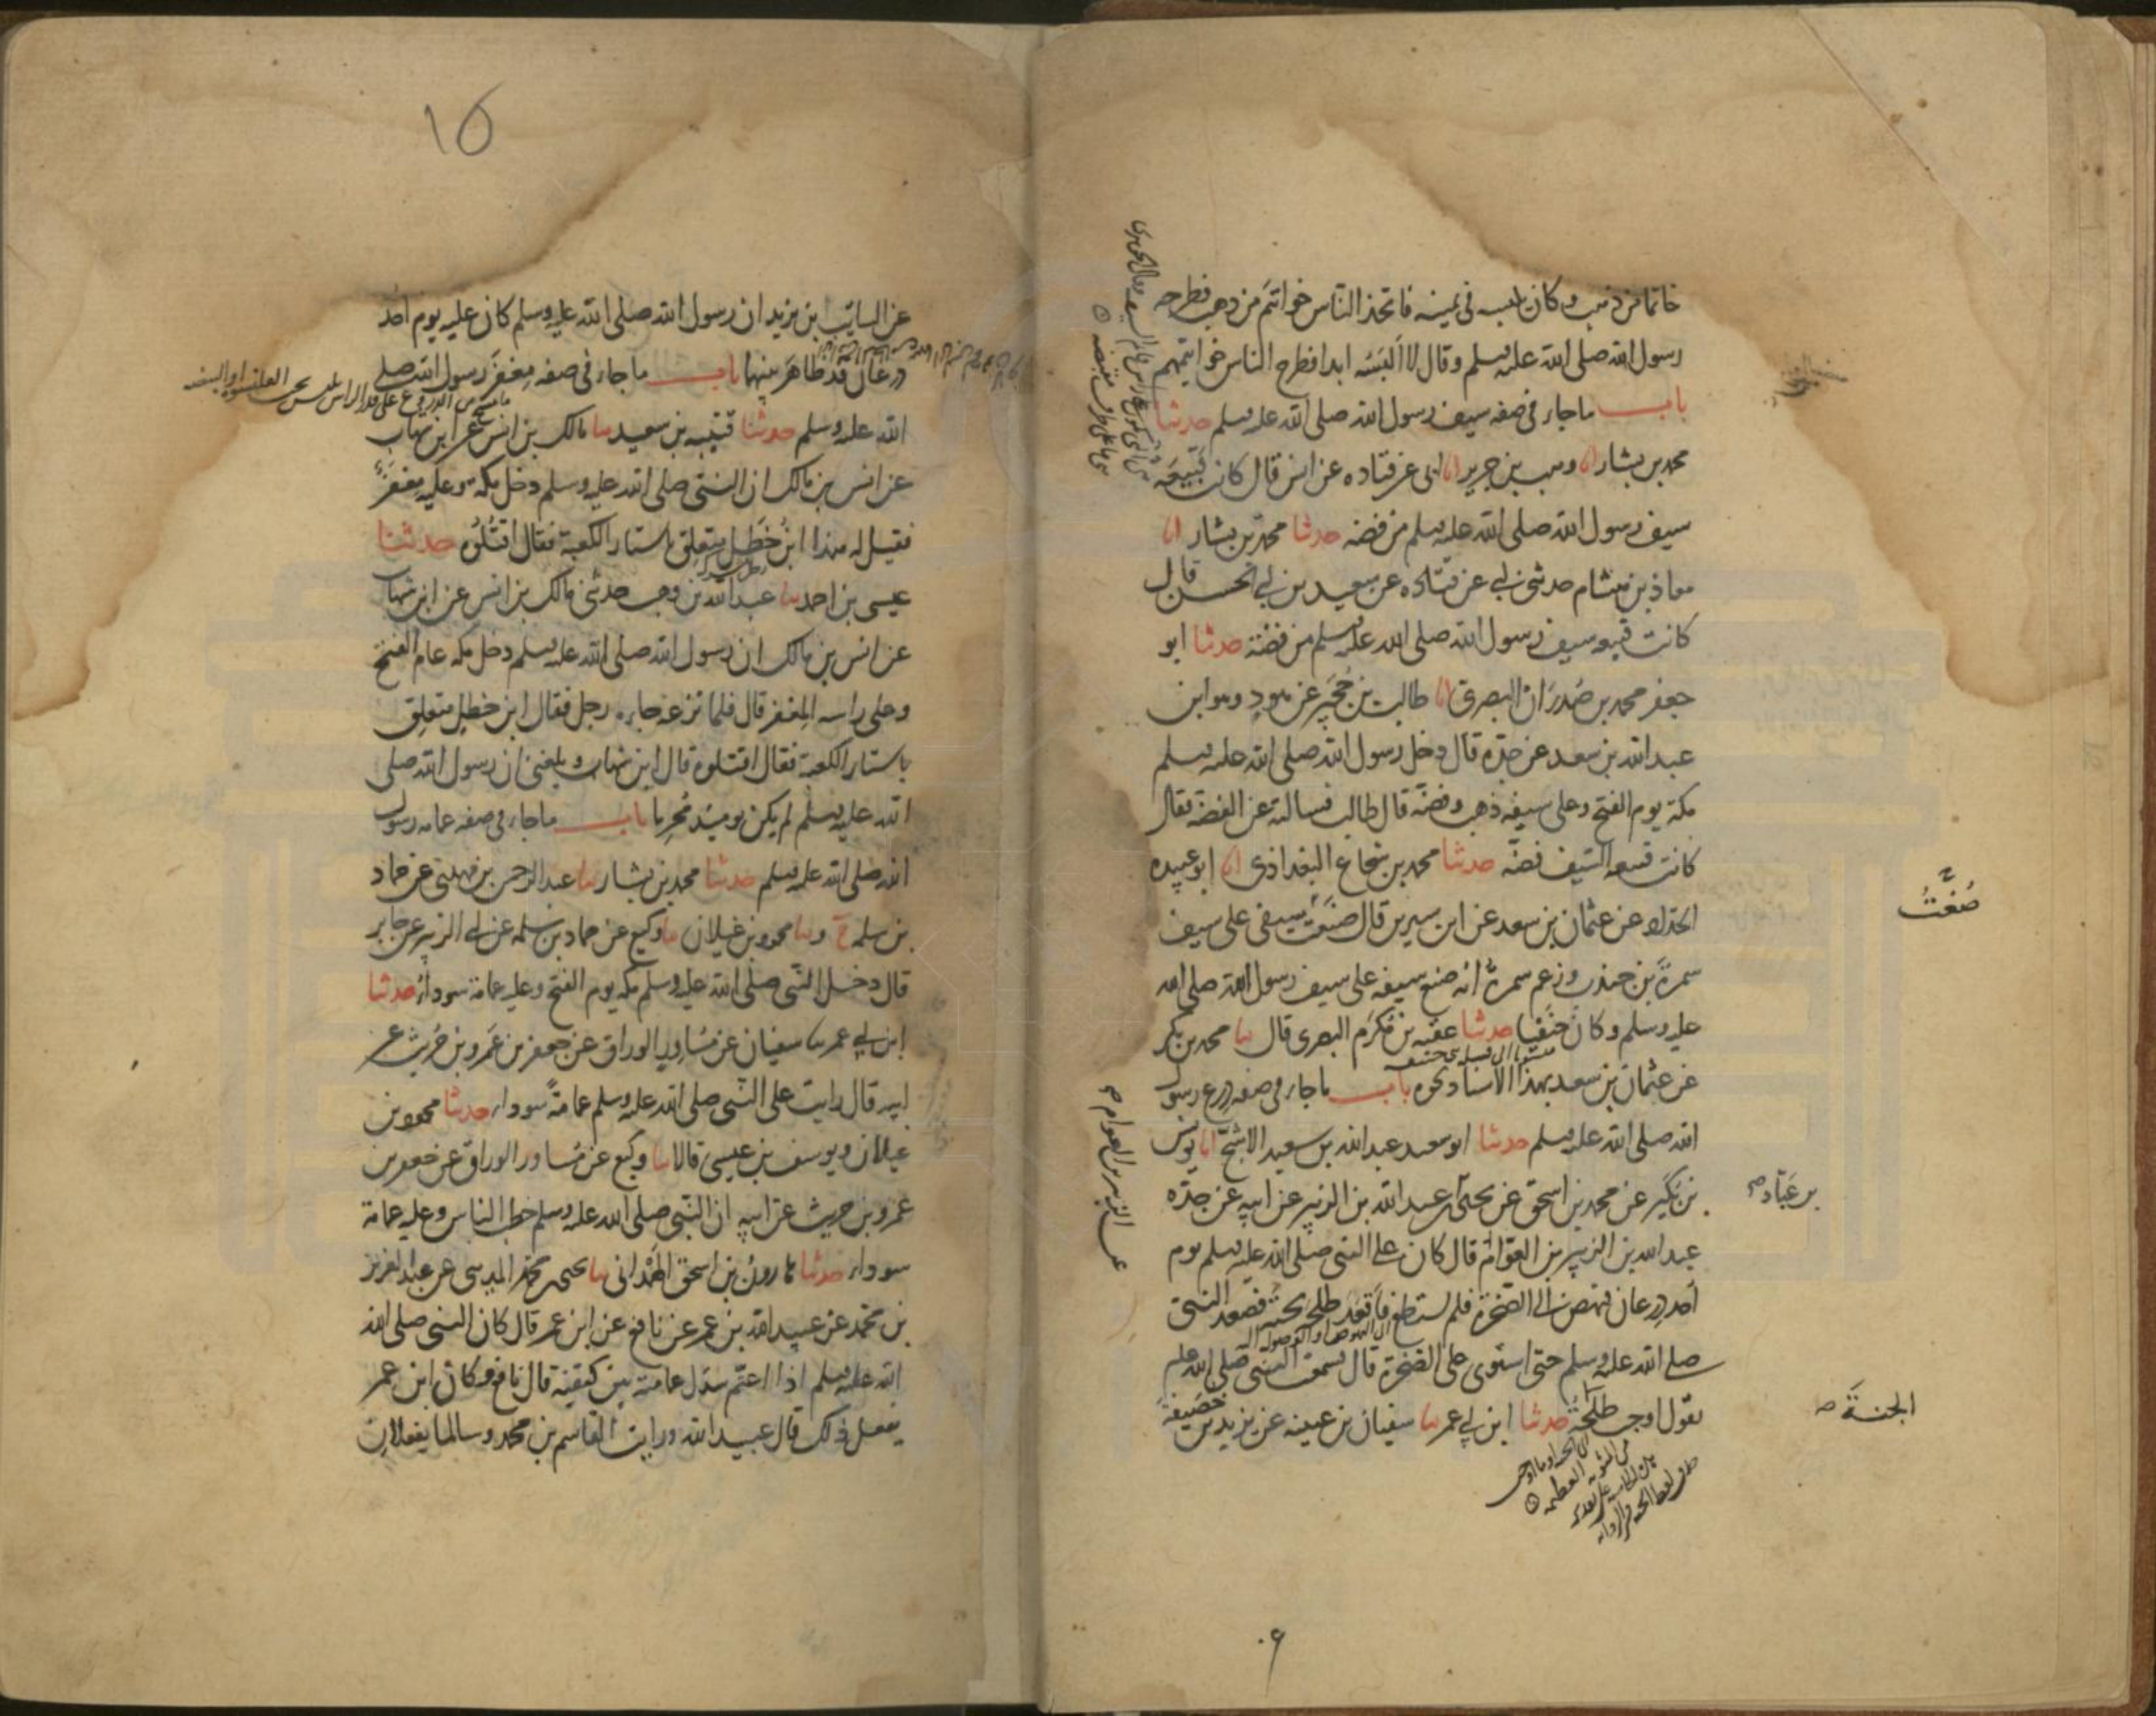 خاتما من ذهب وكان يلبسه في يمينه فاتخذ الناس خواتيم من ذهب فطرحه
رسول الله صلى الله عليه وسلم وقال لا ألبسه ابدا فطرح الناس خواتيمهم
باب ما جاء في صفه سيف رسول الله صلى الله عليه وسلم حدثنا
محمد بن بشار انا وهب بن جرير انا ابى عن قتاده عن انس قال كانت قبيعة
سيف رسول الله صلى الله عليه وسلم من فضه حدثنا محمد بن بشار انا
معاذ بن هشام حدثني ابي عن قتاده عن سعيد بن ابي الحسن قال
كانت قبيعه سيف رسول الله صلى الله عليه وسلم من فضة حدثنا ابو
جعفر محمد بن صُدرَان البصري انا طالب بن حُجَير عن هود وهو ابن
عبد الله بن سعد عن جده قال دخل رسول الله صلى الله عليه وسلم
مكة يوم الفتح وعلى سيفه ذهب وفضة قال طالب فسالته عن الفضة فقال
كانت قبيعه السيف فضة حدثنا محمد بن شجاع البغدادي انا ابو عبيده
الحداد عن عثمان بن سعد عن ابن سيرين قال صنعت سيفى على سيف
سمرة بن جندب وزعم سمرة انه صنع سيفه على سيف رسول الله صلى الله
عليه وسلم وكان حنفيا حدثنا عقبه بن مكرم البصرى قال ثنا محمد بن بكر
عن عثمان بن سعد بهذا الاسناد نحوه باب ما جاء في صفه درع رسول
الله صلى الله عليه وسلم حدثنا ابو سعيد عبد الله بن سعيد الاشج انا يونس
بن بكير عن محمد بن اسحق عن يحيى بن عبد الله بن الزبير عن ابيه عن جده
عبد الله بن الزبير بن العوام قال كان على النبى صلى الله عليه وسلم يوم
أحد درعان فنهض الى الصخرة فلم يستطع فأقعد طلحة تحته فصعد النبي
صلى الله عليه وسلم حتى استوى على الصخرة قال سمعت النبي صلى الله عليه
يقول اوجب طلحة حدثنا ابن ابي عمر ثنا سفيان بن عيينه عن يزيد بن
خُصَيفة
صُغْتُ
بن عَبّاد صح
الجنةَ صح
عن الزبير بن العوام صح
١٥
عن السايب ابن يزيد ان رسول الله صلى الله عليه وسلم كان عليه يوم احد
درعان قد ظاهَرَ بينهما باب ما جاء في صفه مِغفَر رسول الله صلى
الله عليه وسلم حدثنا قتيبه بن سعيد ثنا مالك بن انس عن ابن شهاب
عن انس بن مالك ان النبي صلى الله عليه وسلم دخل مكة وعليه مغفرٌ
فقيل له هذا ابنُ خَطَل متعلق باستار الكعبة فقال اقتُلُوه حدثنا
عيسى بن احمد ثنا عبد الله بن وهب حدثنى مالك بن انس عن ابن شهاب
عن انس بن مالك ان رسول الله صلى الله عليه وسلم دخل مكه عام الفتح
وعلى راسه المغفر قال فلما نزعه جاءه رجل فقال ابن خطل متعلق
باستار الكعبة فقال اقتلوه قال ابن شهاب وبلغنى ان رسول الله صلى
الله عليه وسلم لم يكن يوميذ مُحرِما باب ما جاء في صفه عمامه رسول
الله صلى الله عليه وسلم حدثنا محمد بن بشار ثنا عبد الرحمن بن مهدى عن حماد
بن سلمه ح وثنا محمود بن غيلان ثنا وكيع عن حماد بن سلمه عن ابي الزبير عن جابر
قال دخل النبى صلى الله عليه وسلم مكه يوم الفتح وعليه عمامة سوداء حدثنا
ابن ابي عمر ثنا سفيان عن مُساوِرِ الوراق عن جعفر بن عَمرو بن حُريث عن
ابيه قال رايت على النبى صلى الله عليه وسلم عمامةً سوداء حدثنا محمود بن
غيلان ويوسف بن عيسى قالا ثنا وكيع عن مساور الوراق عن جعفر بن
عمرو بن حريث عن ابيه ان النبى صلى الله عليه وسلم خطب الناس وعليه عمامة
سوداء حدثنا هارون بن اسحق الهَمْدانى ثنا يحيى بن محمد المدينى عن عبد العزيز
بن محمد عن عبيد الله بن عمر عن نافع عن ابن عمر قال كان النبى صلى الله
الله عليه وسلم اذا اعتم سَدَل عمامته بين كتفيه قال نافع وكان ابن عمر
يفعل ذلك قال عبيد الله ورايت القاسم بن محمد وسالما يفعلان